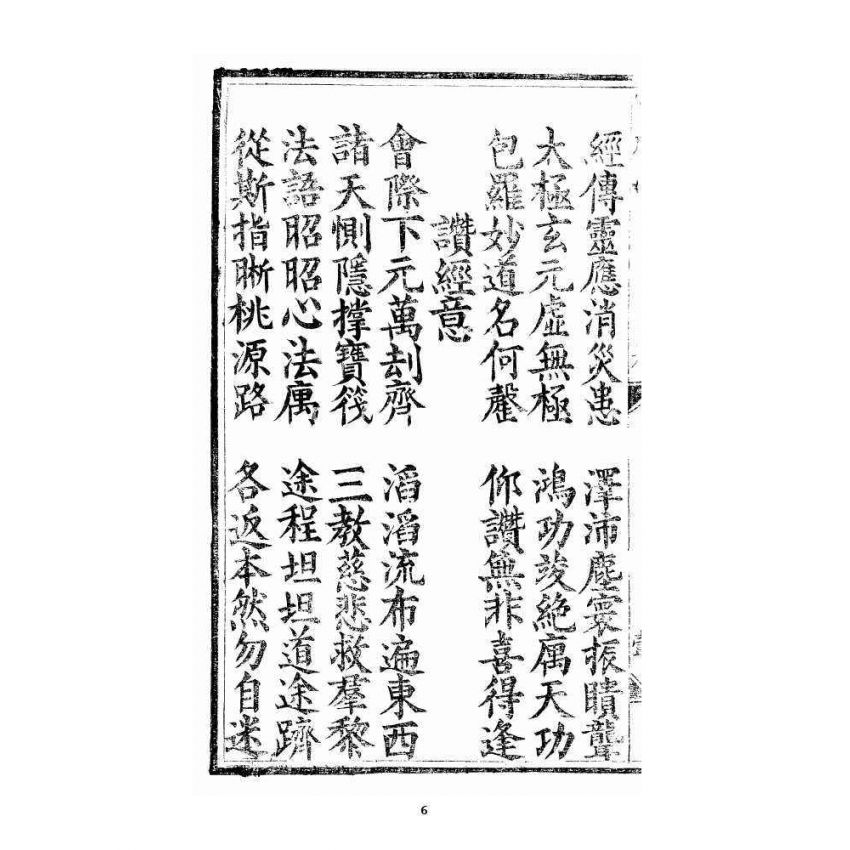 經傳靈應消災患 澤沛塵寰振聵聾
太極玄元虛無極 鴻功竣絕厲天功
包羅妙道名何罄 仰讚無非喜得逢
讚經意
會際下元萬刦齊 滔滔流布遍東西
諸天惻隱撑寶筏 三教慈悲救羣黎
法語昭昭心法寓 途程坦坦道途躋
從斯指晰桃源路 各返本然勿自迷
6